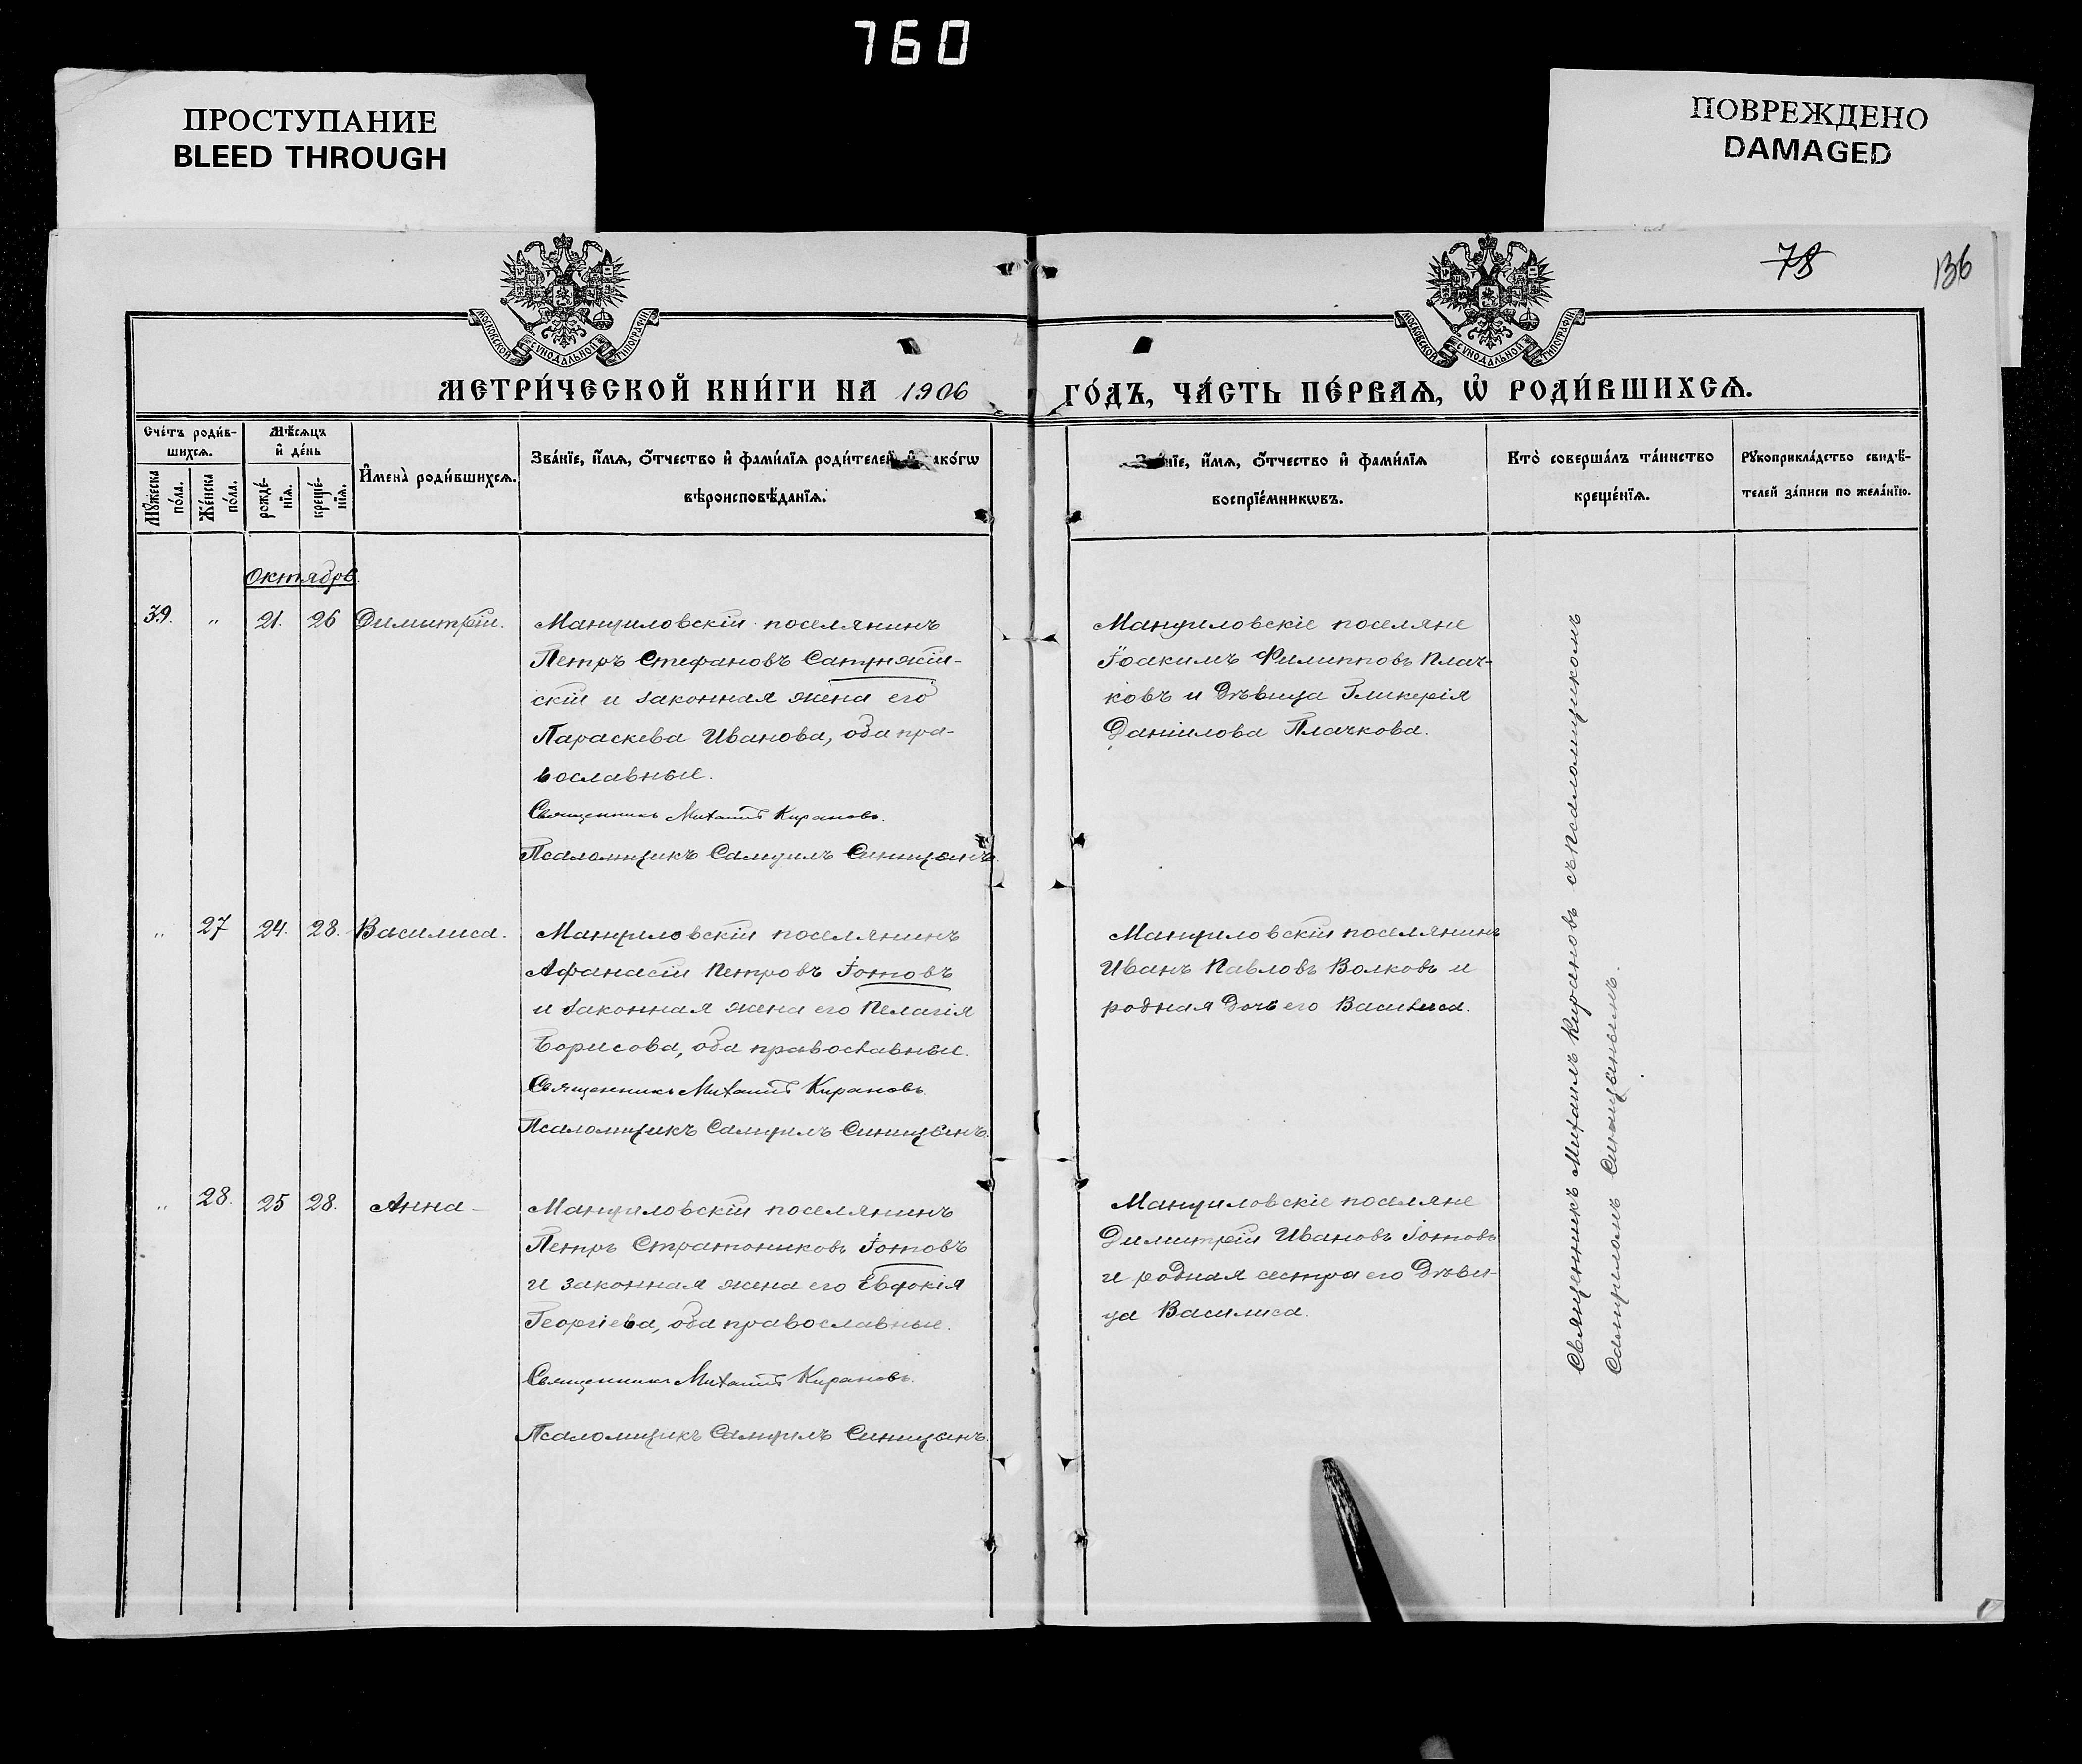 760
ПРОСТУПАНИЕ
BLEED THROUGH
ПОВРЕЖДЕНО
DAMAGED
78
136
МОСКОВСКОЙ СѴНОДАЛЬНОЙ ТИПОГРАФІИ
МОСКОВСКОЙ СѴНОДАЛЬНОЙ ТИПОГРАФІИ
МЕТРИ́ЧЕСКОЙ КНИ́ГИ НА 1906 ГО́ДЪ, ЧА́СТЬ ПЕ́РВАѦ, Ѡ҆ РОДИ́ВШИХСѦ.
Сче́тъ роди́в-
шихсѧ.
Мꙋ́жеска по́ла.
Же́нска по́ла.
Мѣ́сѧцъ
и҆ де́нь
рожде́-
нїѧ.
креще́-
нїѧ.
И҆мена̀ роди́вшихсѧ.
Зва́нїе, и҆́мѧ, ѻ҆́тчество и҆ фами́лїѧ роди́телей, и҆ ако́гѡ
вѣроисповѣ́данїѧ.
нїе, и҆́мѧ, ѻ҆́тчество и҆ фами́лїѧ
воспрїе́мникѡвъ.
Кто̀ соверша́лъ та́инство
креще́нїѧ.
Рꙋкоприкла́дство свидѣ́-
телей за́писи по жела́нїю.
Октябрь.
39. " 21. 26 Димитрій.
Мануиловскій поселянинъ
Петръ Стефановъ
скій и законная жена его
Параскева Иванова, оба пра-
вославные.
Священникъ Михаилъ Кирановъ.
Псаломщикъ Самуилъ Синицынъ.
Мануиловскіе поселяне
Іоакимъ Филипповъ Плач-
ковъ и дѣвица Гликерія
Даніилова Плачкова.
" 27 24. 28. Василиса.
Мануиловскій поселянинъ
Афанасій Петровъ Іотовъ
и законная жена его Пелагія
Борисова, оба православные.
Священникъ Михаилъ Кирановъ.
Псаломщикъ Самуилъ Синицынъ.
Мануиловскій поселянинъ
Иванъ Павловъ Волковъ и
родная дочь его Василиса.
" 28. 25 28. Анна
Мануиловскій поселянинъ
Петръ Стратониковъ Іотовъ
и законная жена его Евдокія
Георгіева, оба православные.
Священникъ Михаилъ Кирановъ.
Псаломщикъ Самуилъ Синицынъ.
Мануиловскіе поселяне
Димитрій Ивановъ Іотовъ
и родная сестра его дѣви-
ца Василиса.
Священникъ Михаилъ Кирановъ съ псаломщикомъ
Самуиломъ Синицынымъ.